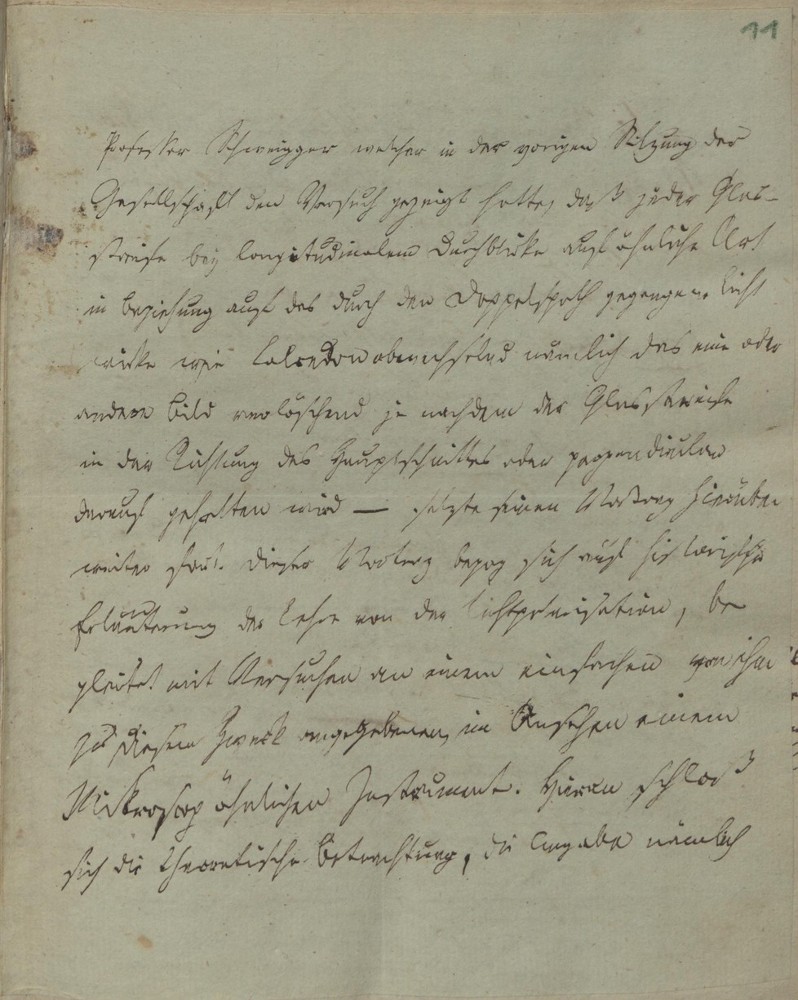 11
Professor Schweigger welcher in der vorigen Sitzung der
Gesellschaft den Versuch gezeigt hatte, daß jeder Glas-
streife bey longitudinalem Durchblicke auf ähnliche Art
in Beziehung auf das durch den Doppelspath gegangene Licht
wirke wie Calcedon abwechselnd nämlich das eine oder
andere Bild verlöschend je nachdem der Glasstreife
in der Richtung des Hauptschnittes oder perpendicular
darauf gehalten wird — setzte seinen Vortrag hierüber
weiter fort. Dieser Vortrag bezog sich auf historische
Erläuterung der Lehre von der Lichtpolarisation, be
gleitet mit Versuchen an einem einfachen von ihm
zu diesem Zweck angegebenen, im Ansehen einem
Mikroscop ähnlichen Instrument. Hieran schloß
sich die theoretische Betrachtung, die Angabe nämlich